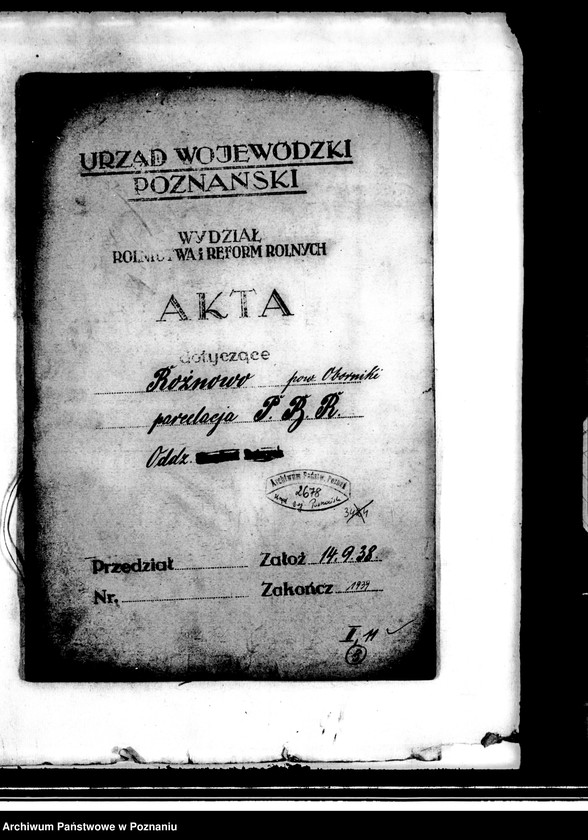 URZĄD WOJEWÓDZKI
POZNAŃSKI
WYDZIAŁ
ROLNICTWA i REFORM ROLNYCH
AKTA
dotyczące
Rożnowo pow. Oborniki
parcelacja P. B. R.
Oddz.
Archiwum Państw. Poznań
2678
Przedział
Założ 14.9.38
Nr.
Zakończ 1939
II, 11
2
Archiwum Państwowe w Poznaniu